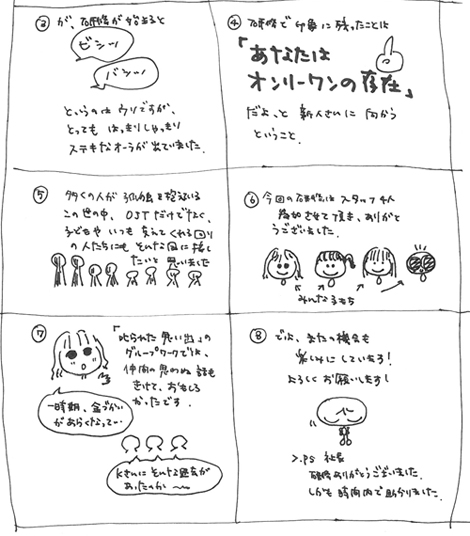 ③ が、研修が始まると
ビシッ
バシッ
というのはウソですが、
とっても はっきりしゃっきり
ステキなオーラが出ていました.
④ 研修で印象に残ったことは
「あなたは
オンリーワンの存在」
だよ、と 新人さんに 向かう
ということ.
⑤ 多くの人が 孤独感を抱えている
この世の中、OJTだけでなく、
子どもや いつも 支えてくれる回り
の人たちにも そんな風に接し
たいと 思いました
⑥ 今回の研修には スタッフ4人
参加させて頂き、ありがと
うございました.
みんな子もち
⑦ 「叱られた 思い出」の
グループワークでは、
仲間の思わぬ 話も
きけて、おもしろ
かったです.
一時期、金づかい
があらくなって…
Kさんに そんな過去が
あったのか 〜〜
⑧ では、またの機会も
楽しみに しています!
よろしく お願いします!
>.PS 社長
研修ありがとうございました.
しかも 時間内で 助かりました.